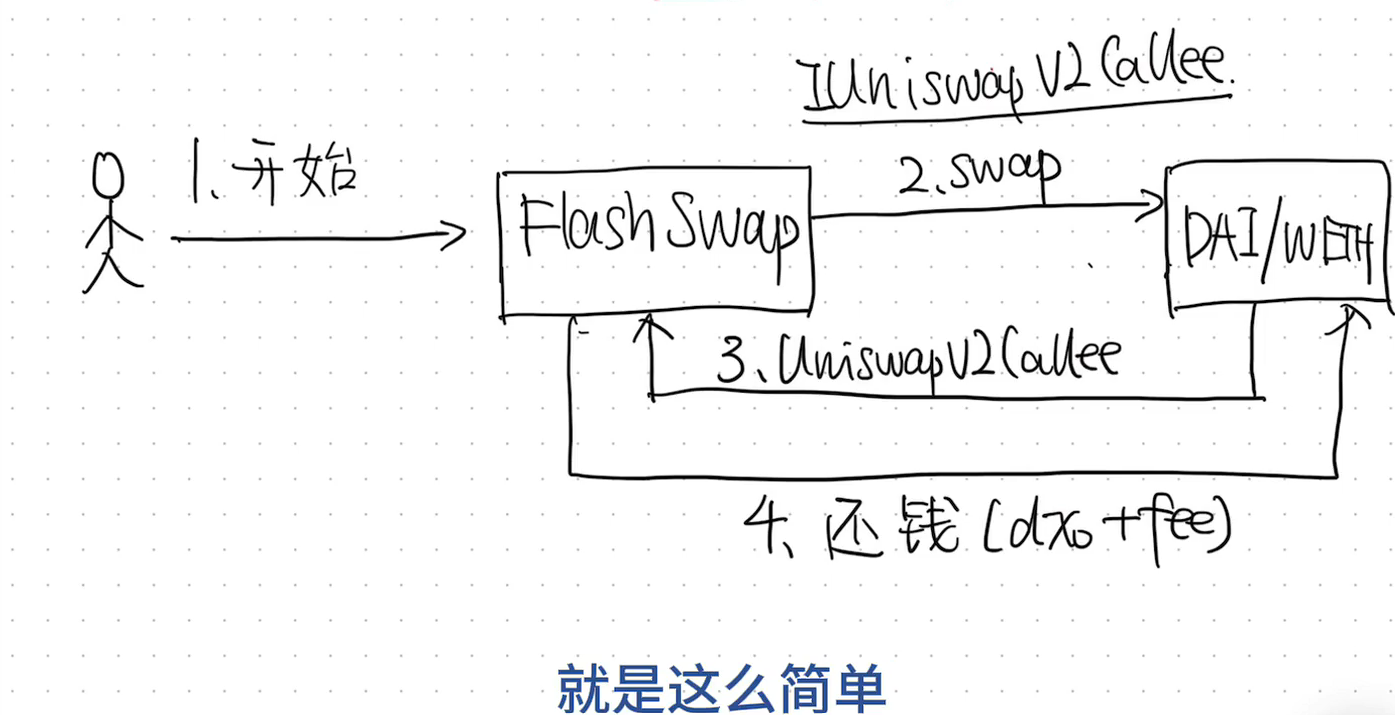 IUniswapV2Callee.
1、开始
2、swap
FlashSwap
DAI/WETH
3、UniswapV2Callee
4、还钱(dx₀+fee)
就是这么简单